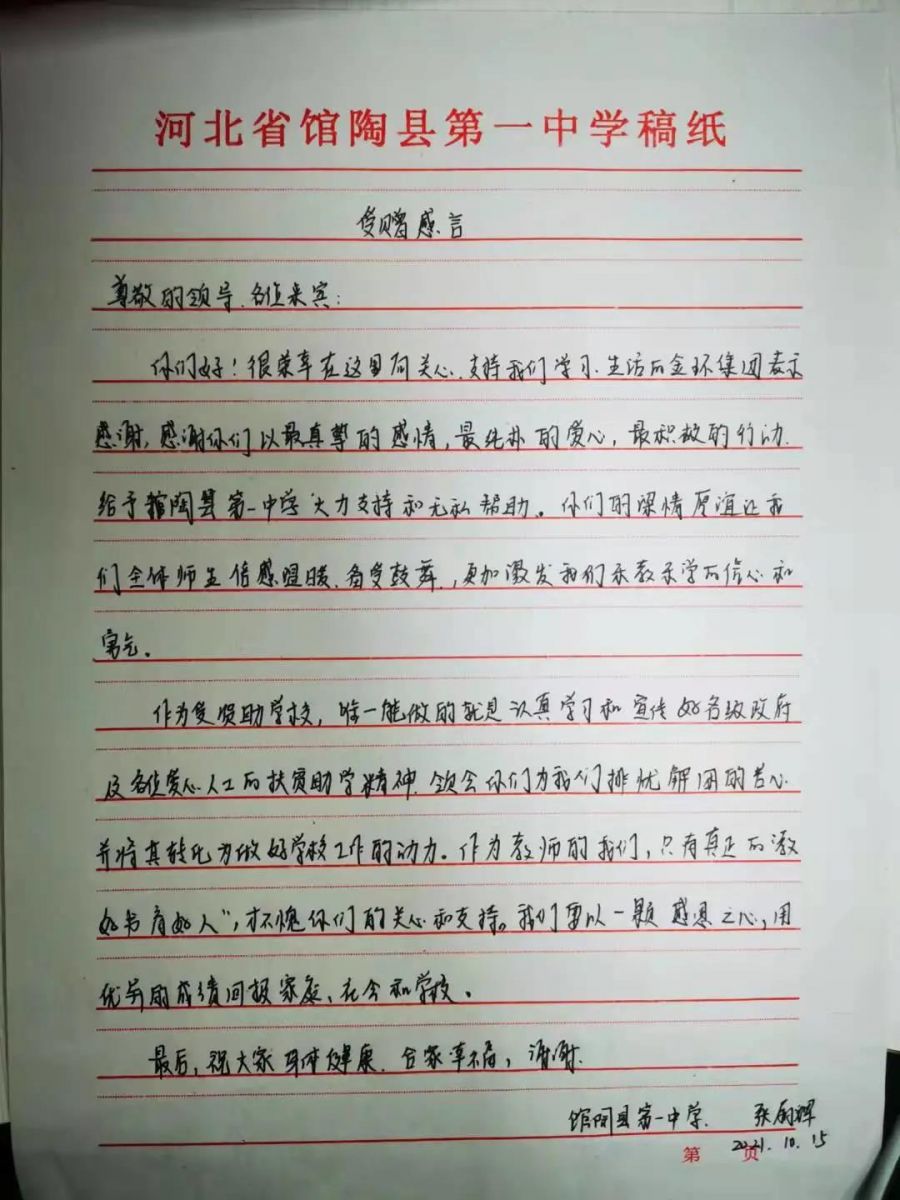 河北省馆陶县第一中学稿纸
受赠感言
尊敬的领导、各位来宾:
你们好!很荣幸在这里向关心、支持我们学习、生活的金环集团表示
感谢,感谢你们以最真挚的感情,最纯朴的爱心,最积极的行动.
给予馆陶县第一中学大力支持和无私帮助。你们的深情厚谊让我
们全体师生倍感温暖、备受鼓舞,更加激发我们乐教乐学的信心和
勇气。
作为受资助学校,唯一能做的就是认真学习和宣传好各级政府
及各位爱心人士的扶贫助学精神.领会你们为我们排忧解困的苦心
并将其转化为做好学校工作的动力。作为教师的我们,只有真正的“教
好书育好人”,才不愧你们的关心和支持。我们要以一颗感恩之心,用
优异的成绩回报家庭、社会和学校。
最后,祝大家身体健康.合家幸福,谢谢.
馆陶县第一中学.
2021.10.15
第 页